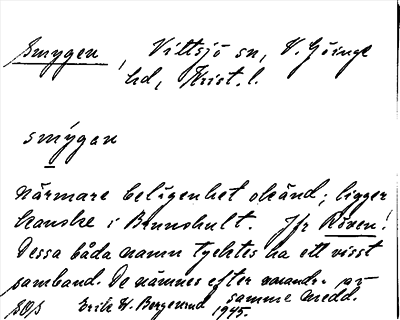 Smygen, Vittsjö sn, V. Göinge
hd, Krist. l.
smýgan
närmare belägenhet okänd; ligger
kanske i Brunnshult. Jfr Röven!
Dessa båda namn tycktes ha ett visst
samband. De nämnes efter varandra på
samma medd.
Erik W. Bergerud 1945.